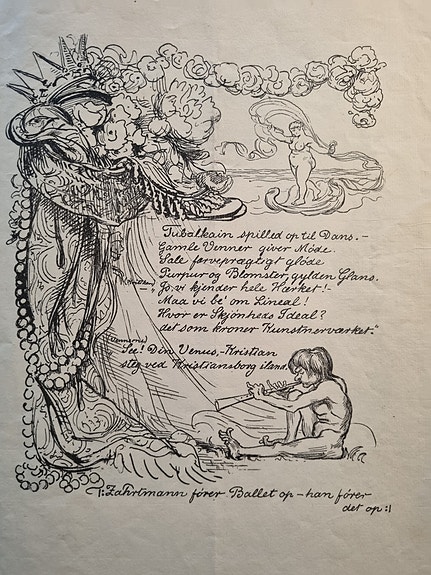 Tubalkain spilled op til Dans.-
Gamle Venner giver Møde.
Sale farveprægtigt gløde
Purpur og Blomster, gylden Glans.
Kritiken: "Jo, vi kjender hele Hærket!-
Maa vi be' om Lineal!
Hvor er Skjönheds Ideal?
det som kroner Kunstnerværket."
Vennerne: See! Din Venus,-Kristian
steg ved Kristiansborg iland.
|: Zahrtmann fører Ballet op - han fører
det op :|